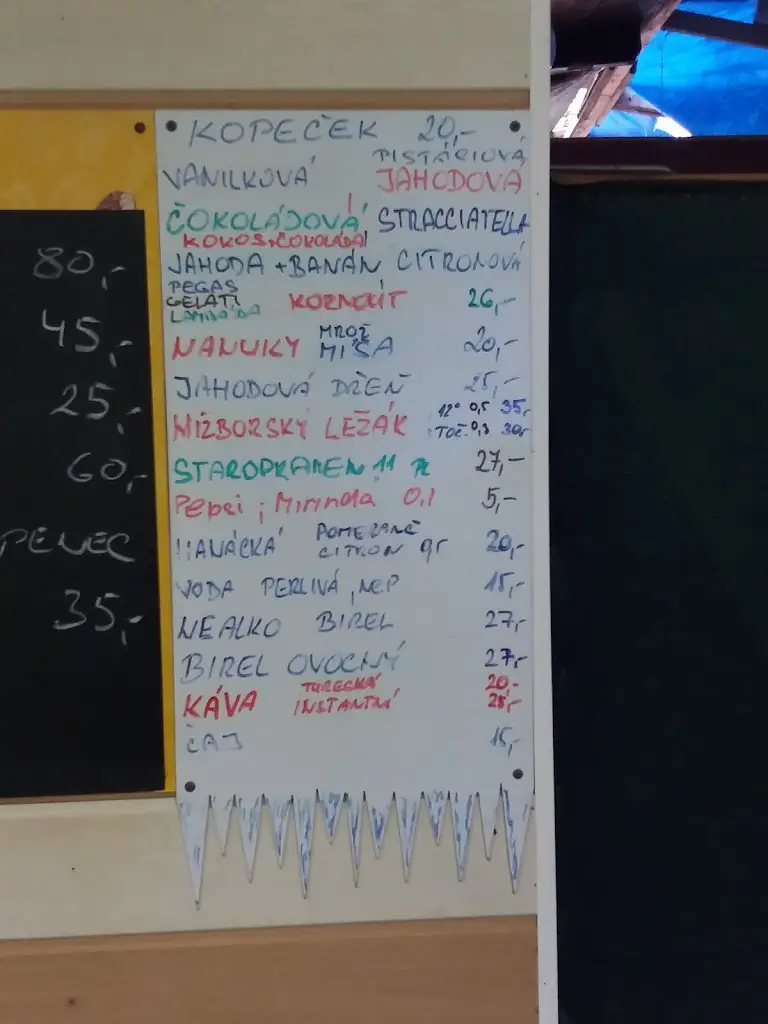 KOPEČEK 20,-
PISTÁCIOVÁ
VANILKOVÁ JAHODOVÁ
ČOKOLÁDOVÁ STRACCIATELLA
KOKOS+ČOKOLÁDA
JAHODA + BANÁN CITRONOVÁ
PEGAS
GELATI KORNOUT 26,-
LAMBADA
NANUKY MROŽ MÍŠA 20,-
JAHODOVÁ DŘEŇ 25,-
NIŽBORSKÝ LEŽÁK 12° 0,5 35,-
TOČ. 0,3 30,-
STAROPRAMEN 11 27,-
Pepsi ; Mirinda 0,1 5,-
HANÁCKÁ POMERANČ CITRON 20,-
VODA PERLIVÁ, NEP 15,-
NEALKO BIREL 27,-
BIREL OVOCNÝ 27,-
KÁVA TURECKÁ 20,-
INSTANTNÍ 25,-
ČAJ 15,-
80,-
45,-
25,-
60,-
35,-